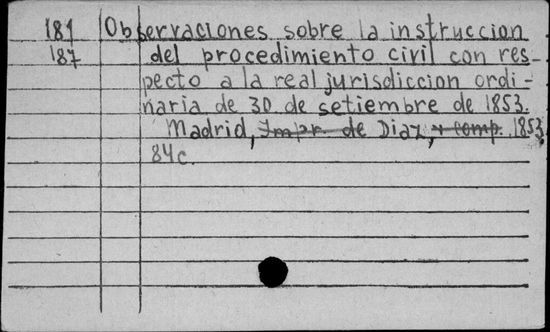 181 Observaciones sobre la instruccion
187 del procedimiento civil con res-
pecto a la real jurisdiccion ordi-
naria de 30 de setiembre de 1853.
Madrid, Impr. de Diaz, y comp. 1853.
84c.